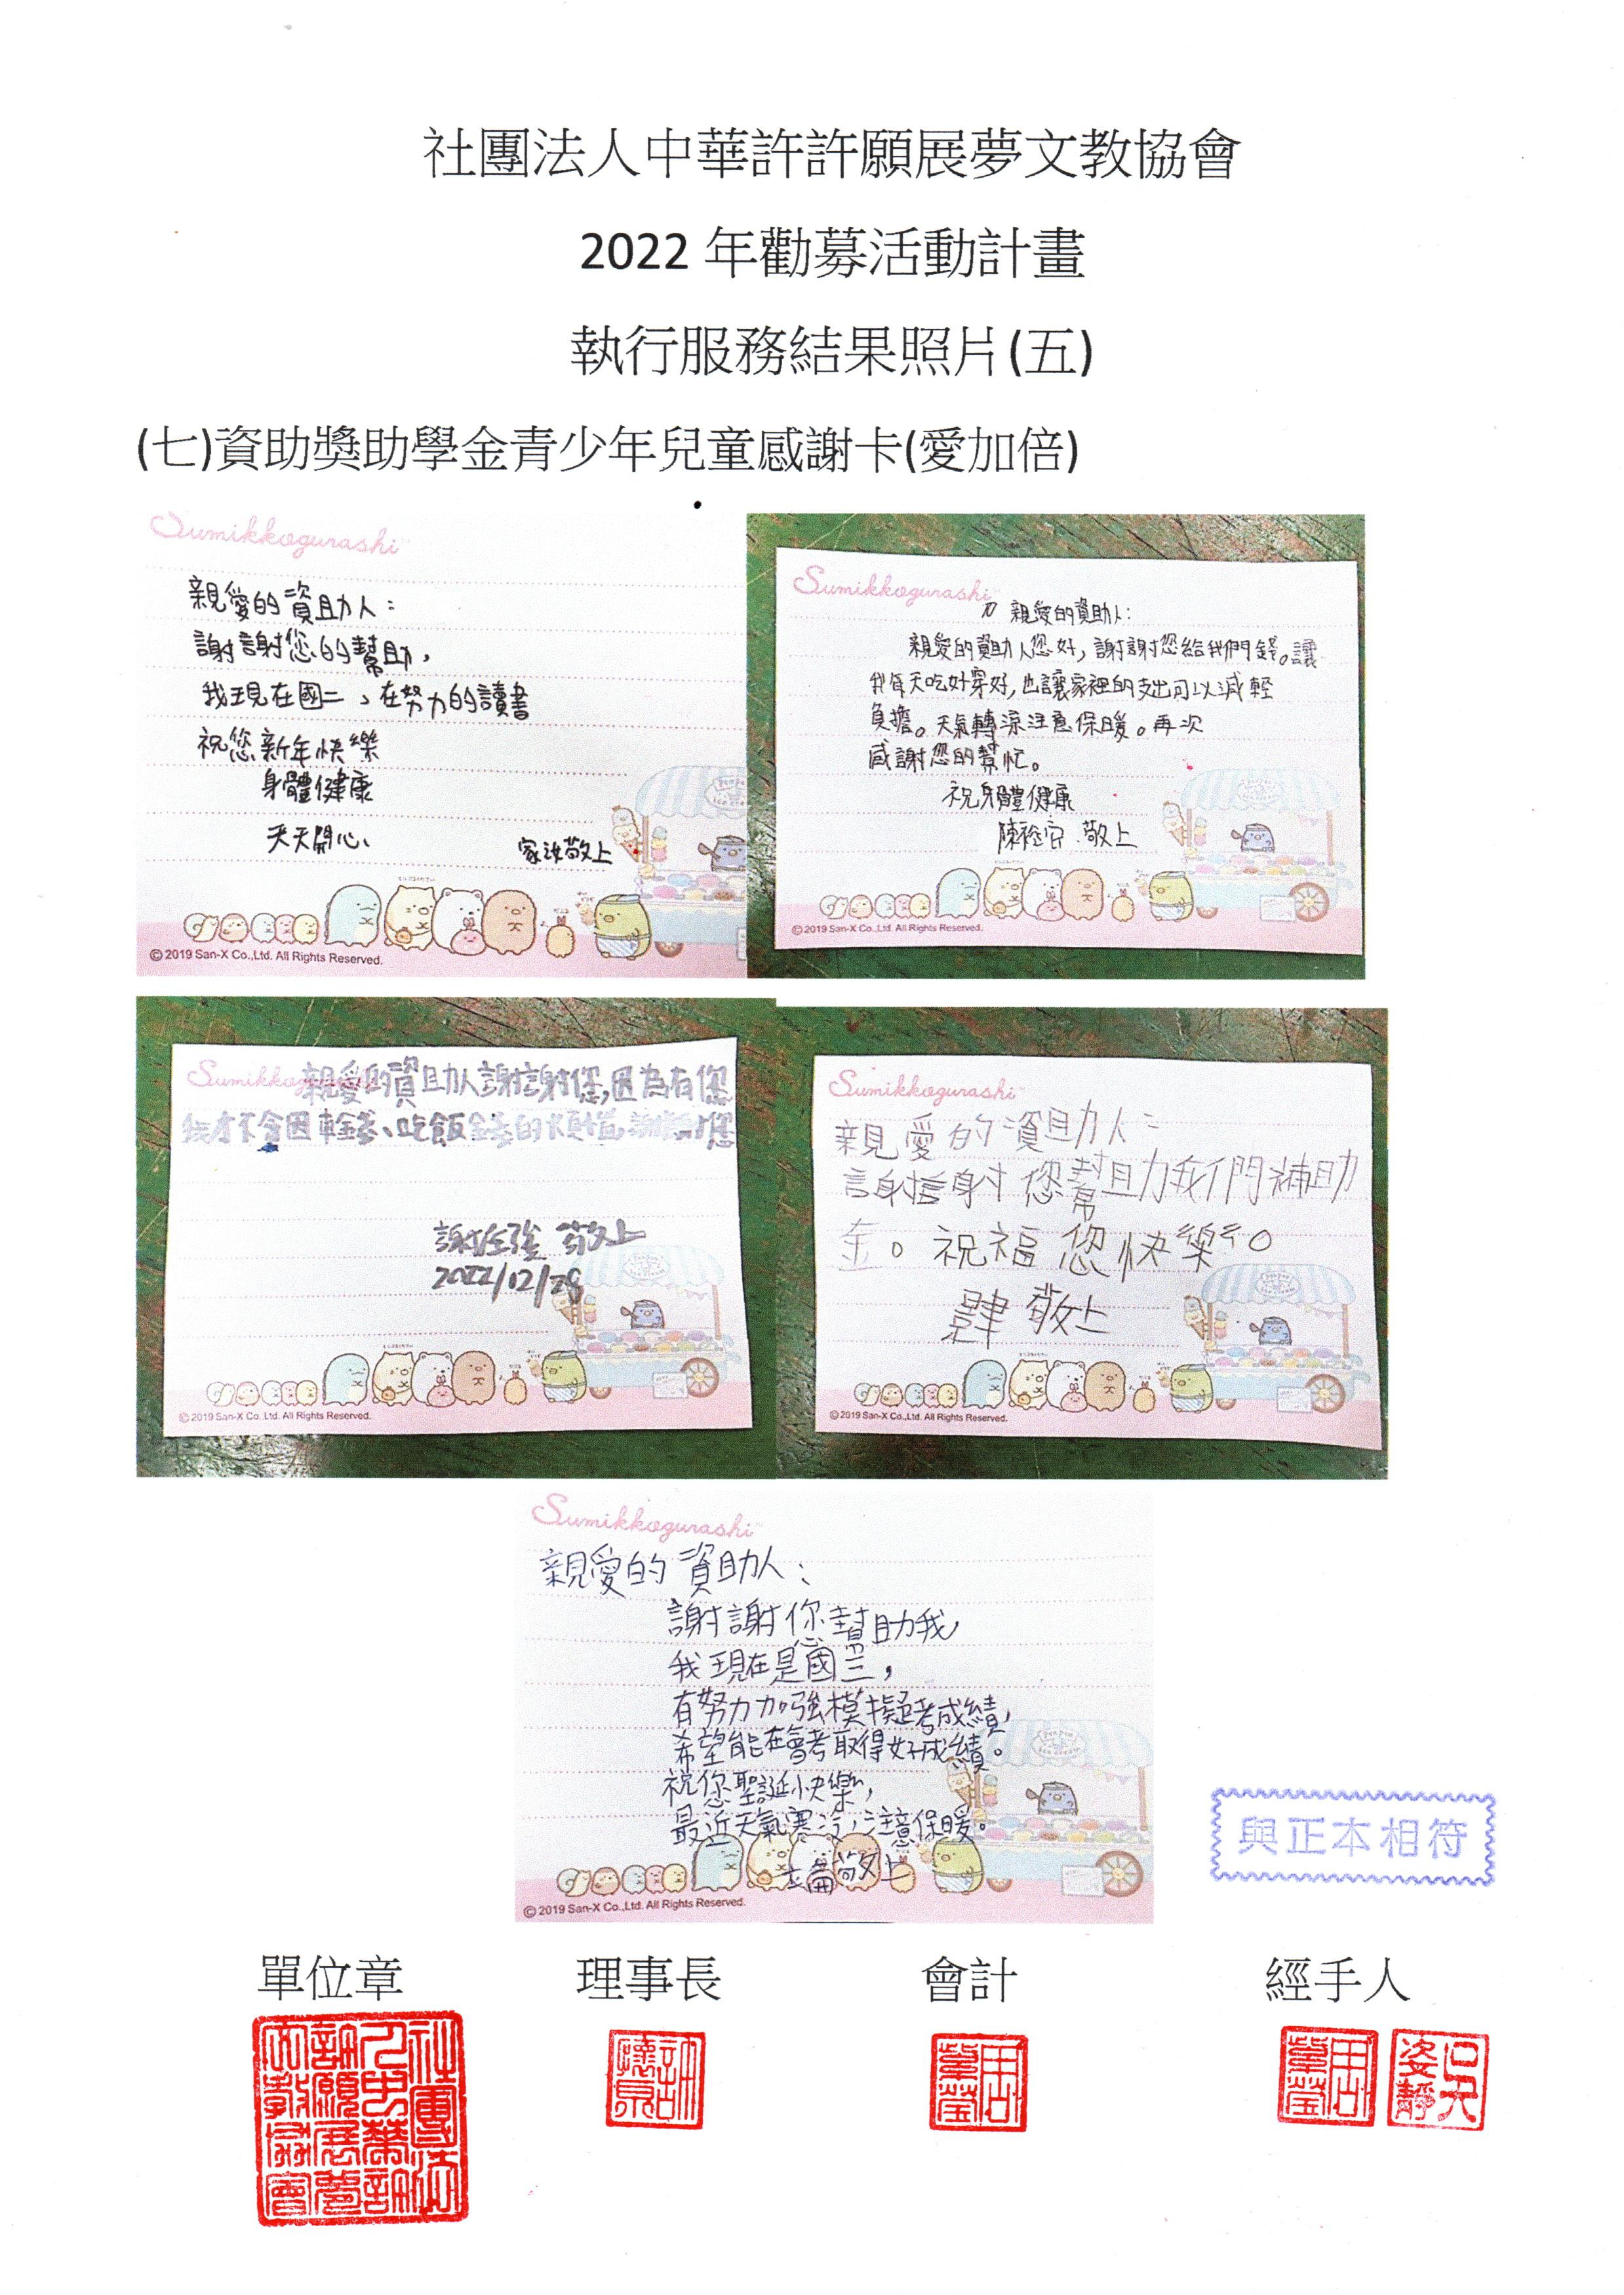 社團法人中華許許願展夢文教協會
2022 年勸募活動計畫
執行服務結果照片(五)
(七)資助獎助學金青少年兒童感謝卡(愛加倍)
Sumikkogurashi
親愛的資助人：
謝謝您的幫助，
我現在國二、在努力的讀書
祝您新年快樂
身體健康
天天開心
家汝敬上
© 2019 San-X Co.,Ltd. All Rights Reserved.
Sumikkogurashi
親愛的資助人:
親愛的資助人您好,謝謝您給我們錢。讓
我每天吃好穿好,也讓家裡的支出可以減輕
負擔。天氣轉涼注意保暖。再次
感謝您的幫忙。
祝身體健康
敬上
© 2019 San-X Co.,Ltd. All Rights Reserved.
Sumikkogurashi
親愛的資助人謝謝您,因為有您
我才不會因車錢、吃飯錢的煩惱,謝謝您
敬上
2022/12/28
© 2019 San-X Co.,Ltd. All Rights Reserved.
Sumikkogurashi
親愛的資助人：
謝謝您幫助我們補助
金。祝福您快樂。
敬上
© 2019 San-X Co.,Ltd. All Rights Reserved.
Sumikkogurashi
親愛的資助人：
謝謝您幫助我,
我現在是國三，
有努力加強模擬考成績,
希望能在會考取得好成績。
祝您聖誕快樂，
最近天氣寒冷,注意保暖。
敬上
© 2019 San-X Co.,Ltd. All Rights Reserved.
與正本相符
單位章 理事長 會計 經手人
社團法人中華許許願展夢文教協會
許懷泉
周瑩瑩
周瑩瑩
吳姿靜